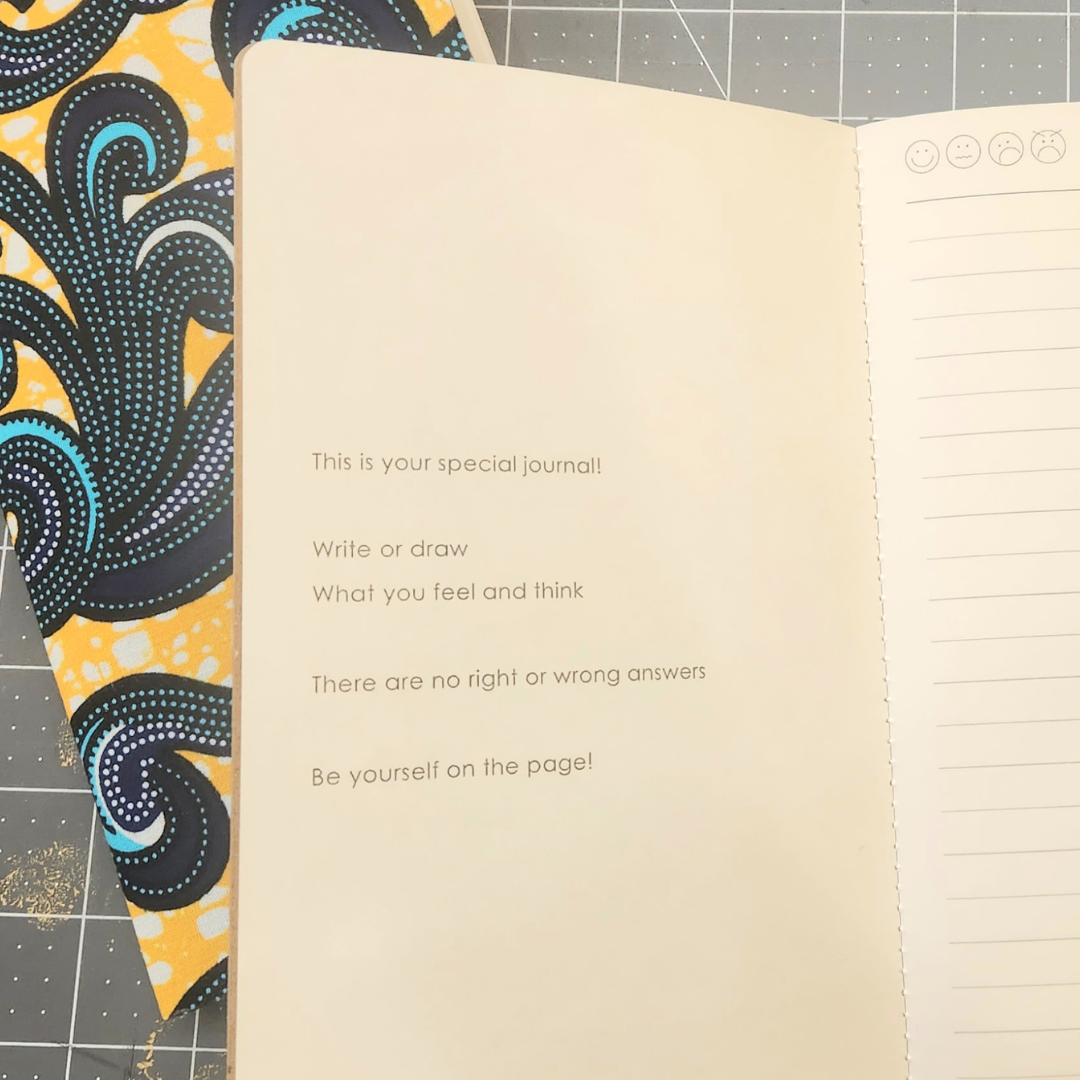 This is your special journal!
Write or draw
What you feel and think
There are no right or wrong answers
Be yourself on the page!